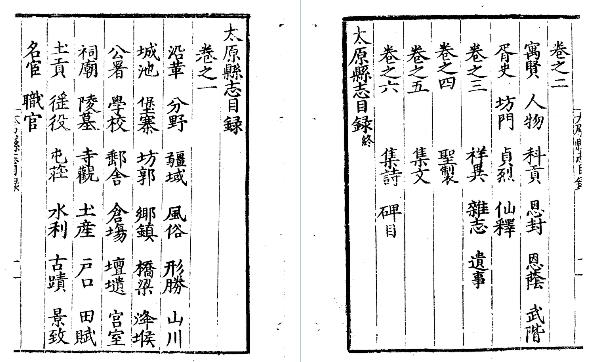 太原縣志目録
卷之一
沿革 分野 疆域 風俗 形勝 山川
城池 堡寨 坊郭 鄉鎮 橋梁 烽堠
公署 學校 郵舍 倉塲 壇壝 宮室
祠廟 陵墓 寺觀 土産 戶口 田賦
土貢 徭役 屯莊 水利 古蹟 景致
名宦 職官
卷之二
寓賢 人物 科貢 恩封 恩蔭 武階
胥史 坊門 貞烈 仙釋
卷之三 祥異 雜志 遺事
卷之四 聖製
卷之五 集文
卷之六 集詩 碑目
太原縣志目録終